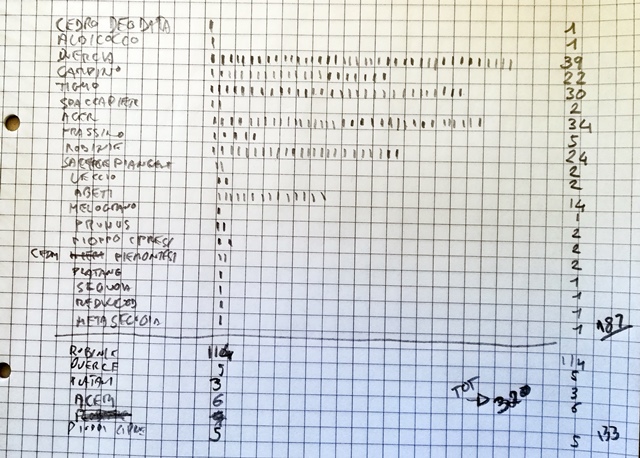 CEDRO DEODARA 1
ALBICOCCO 1
QUERCIA 39
CARPINO 22
TIGLIO 30
2
ACER 34
FRASSINO 5
ROBINIE 24
PIANGENTE 2
LECCIO 2
ABETI 14
MELOGRANO 1
PRUNUS 2
PIOPPO CIPRESS 2
CEDRI PIEMONTESI 2
PLATANO 1
SEQUOIA 1
1
METASEQUOIA 1 187
ROBINIE 114 114
QUERCE 5 5
PLATANI 3 3
ACERI 6 TOT 320 6
PIOPPI CIPRE 5 5 133